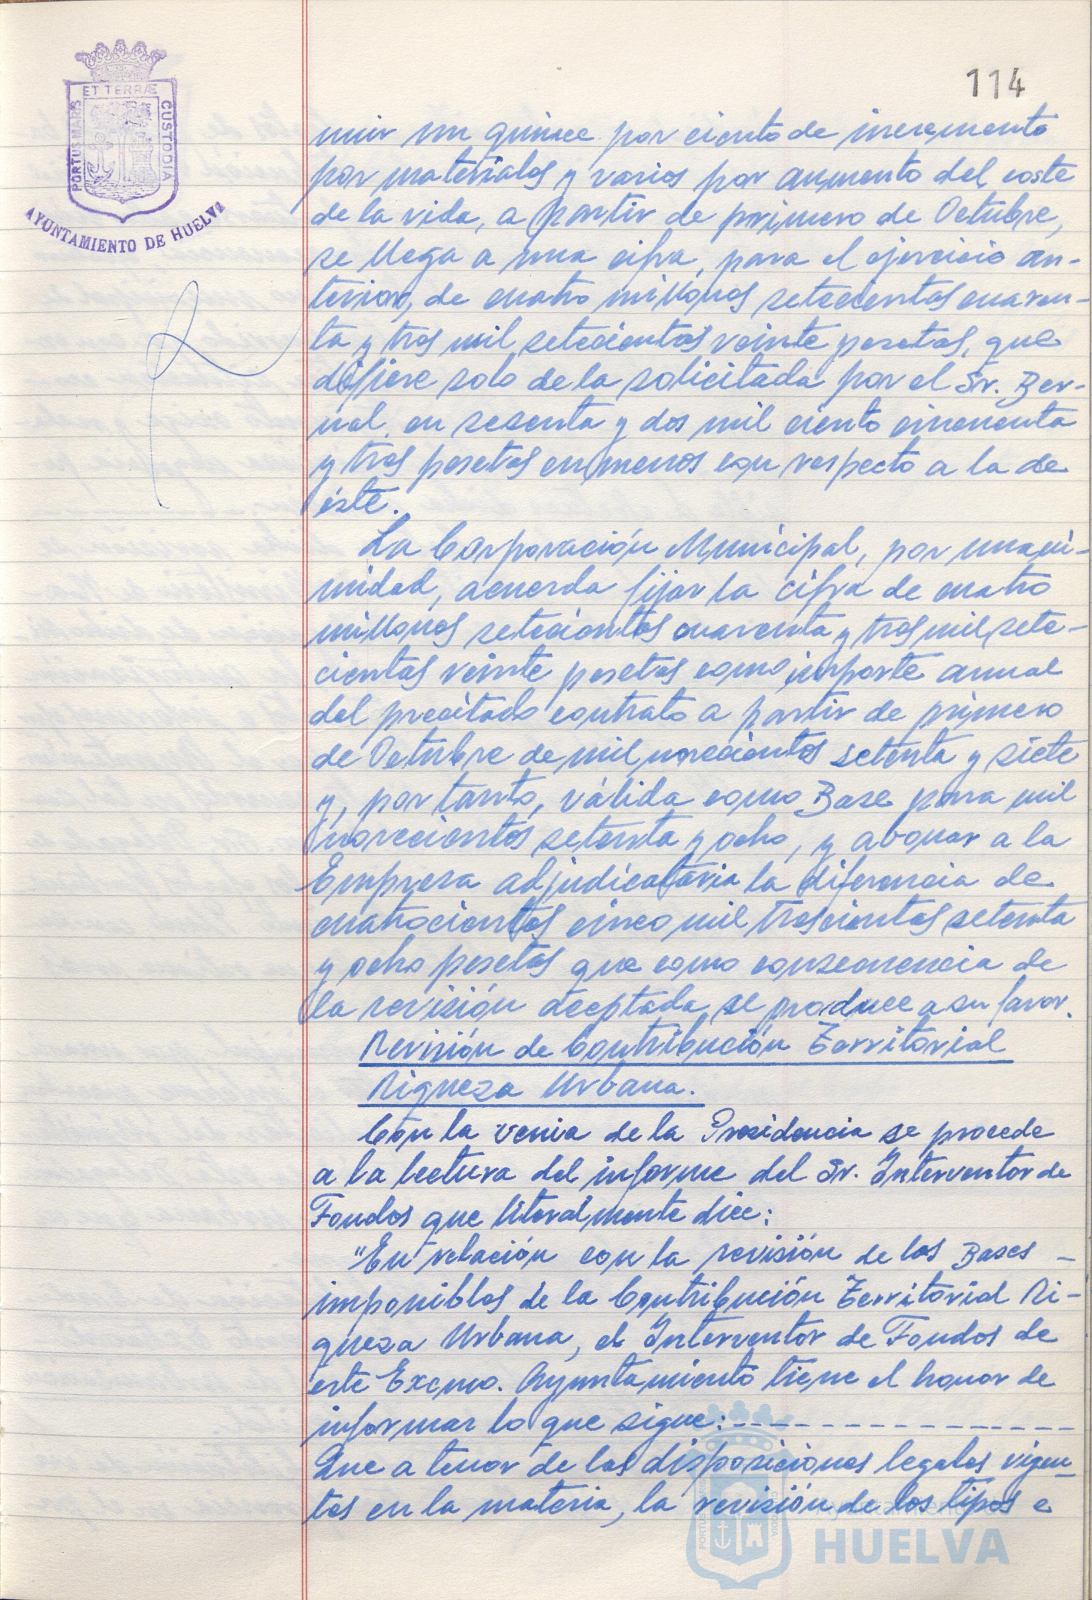 114
ET TERRÆ
PORTUS MARIS
CUSTODIA
AYUNTAMIENTO DE HUELVA
mir un quince por ciento de incremento
por materiales y varios por aumento del coste
de la vida, a partir de primero de Octubre,
se llega a una cifra, para el ejercicio an-
terior, de cuatro millones setecientas cuaren-
ta y tres mil setecientas veinte pesetas, que
difiere solo de la solicitada por el Sr. Ber-
nal, en sesenta y dos mil ciento cincuenta
y tres pesetas en menos con respecto a la de
éste.
La Corporación Municipal, por unani-
midad, acuerda fijar la cifra de cuatro
millones setecientas cuarenta y tres mil sete-
cientas veinte pesetas como importe anual
del precitado contrato a partir de primero
de Octubre de mil novecientos setenta y siete
y, por tanto, válida como Base para mil
novecientos setenta y ocho, y abonar a la
Empresa adjudicataria la diferencia de
cuatrocientas cinco mil trescientas setenta
y ocho pesetas que como consecuencia de
la revisión aceptada se produce a su favor.
Revisión de Contribución Territorial
Riqueza Urbana.
Con la venia de la Presidencia se procede
a la lectura del informe del Sr. Interventor de
Fondos que literalmente dice:
"En relación con la revisión de las Bases -
imponibles de la Contribución Territorial Ri-
queza Urbana, el Interventor de Fondos de
este Excmo. Ayuntamiento tiene el honor de
informar lo que sigue: - - - - - - - - - - - - - - -
Que a tenor de las disposiciones legales vigen-
tes en la materia, la revisión de los tipos e
Ayuntamiento de
HUELVA